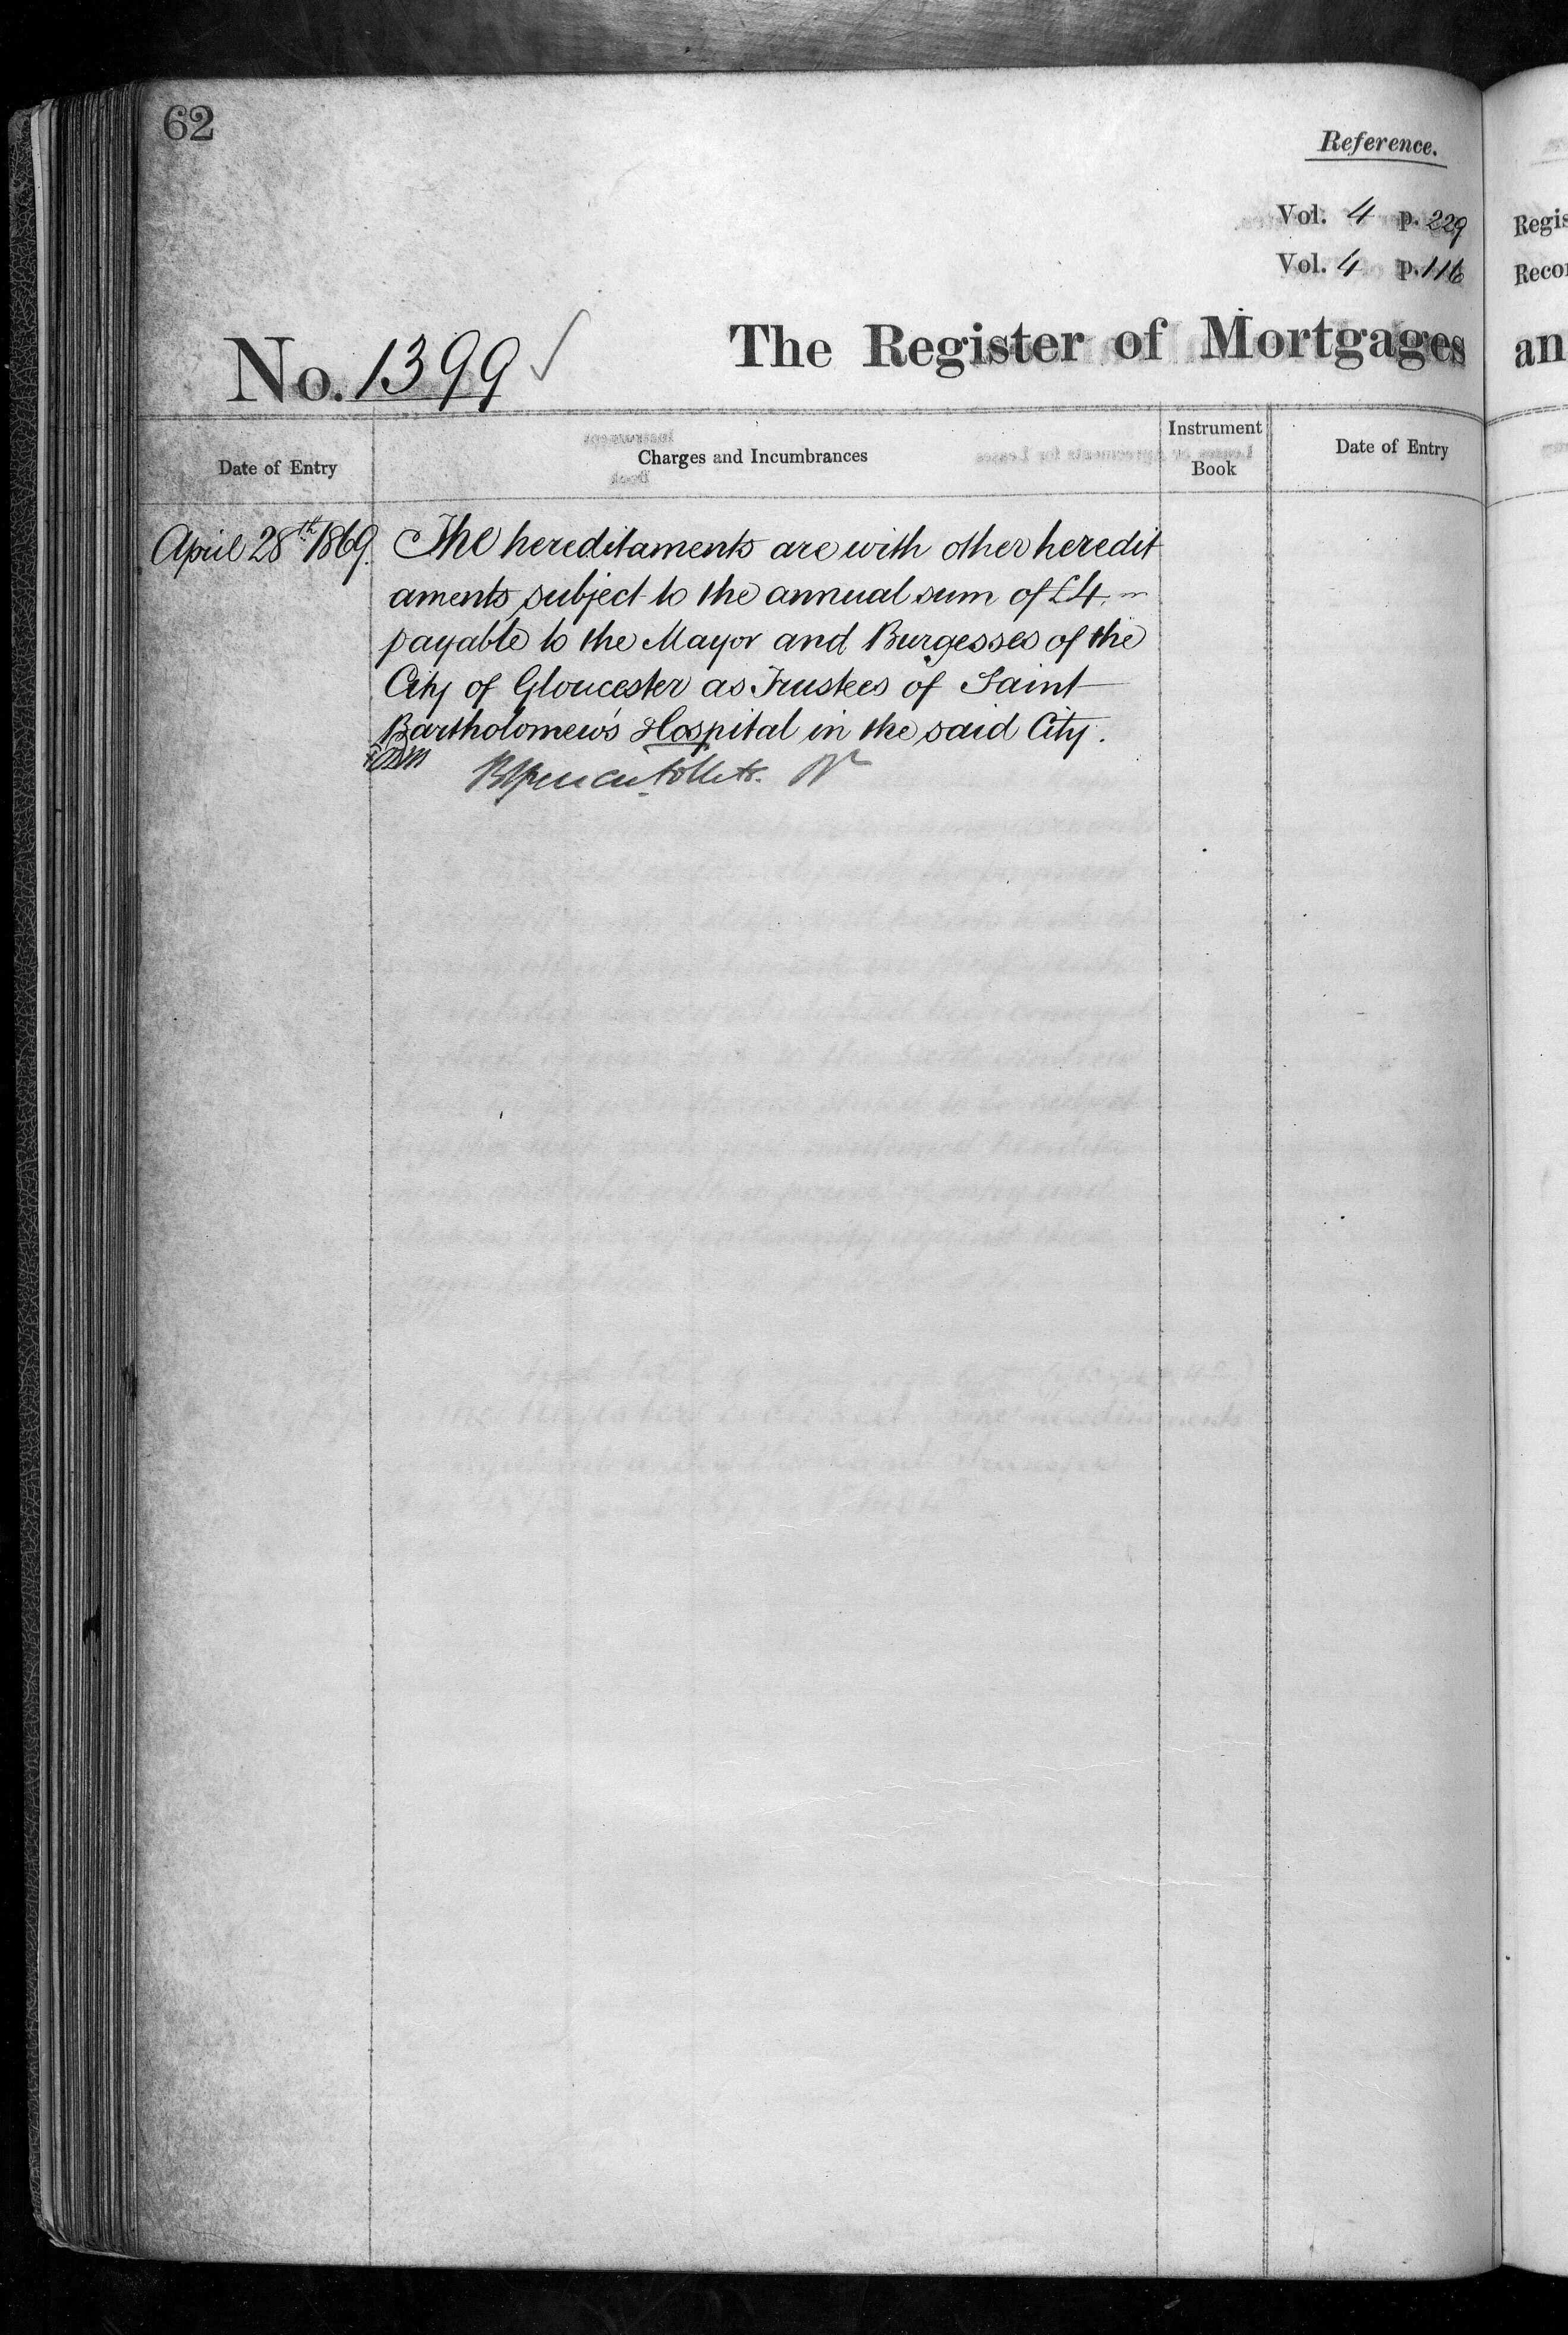 62
Reference.
Vol. 4 p. 229
Vol. 4 p. 116
No. 1399
The Register of Mortgages
Date of Entry
Charges and Incumbrances
Instrument
Book
Date of Entry
April 28th 1869.
The hereditaments are with other heredit
aments subject to the annual sum of £4.
payable to the Mayor and Burgesses of the
City of Gloucester as Trustees of Saint
Bartholomew's Hospital in the said City.
Regis
Recor
an